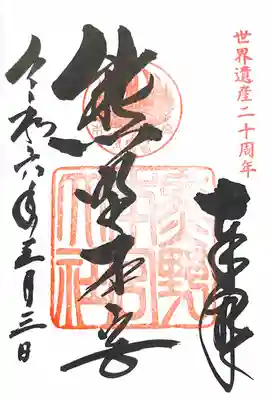 世界遺産二十周年
奉拝
熊野本宮
令和六年五月三日